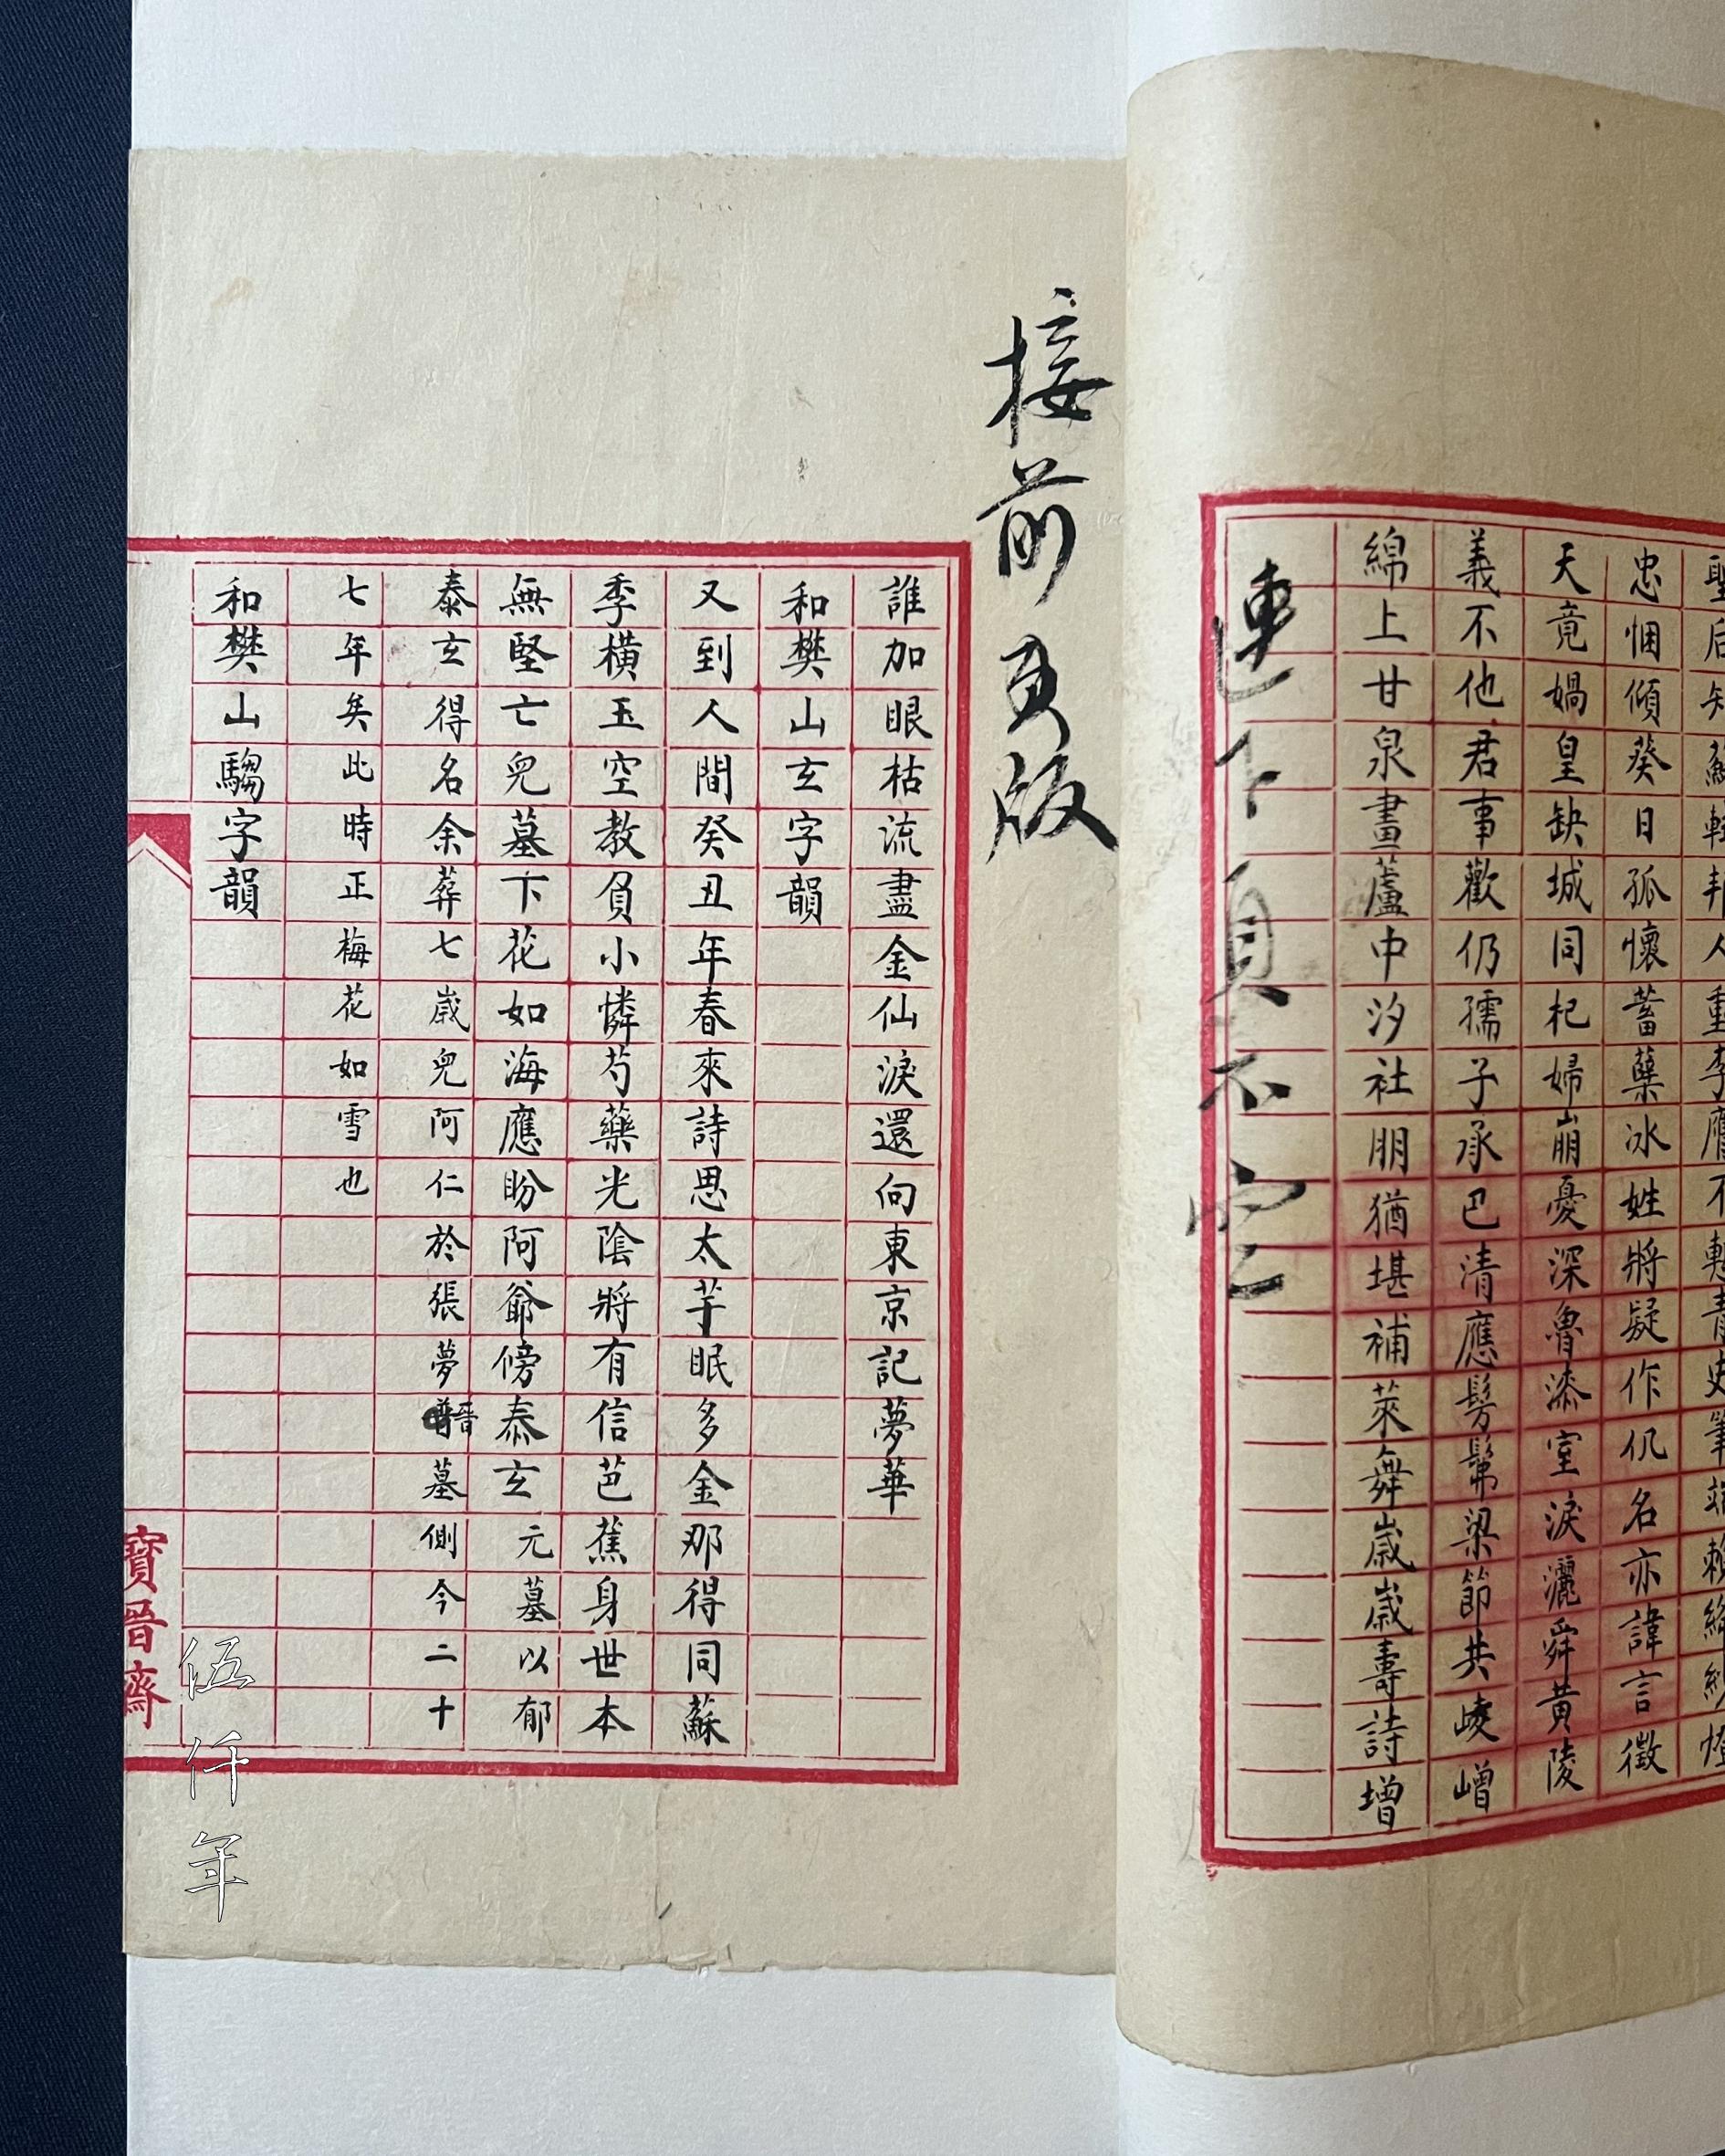 聖后知蘇軾邦人重李膺不慙青史筆
忠悃傾葵日孤懷蓄蘗冰姓將疑作仉名亦諱言徵
天竟媧皇缺城同杞婦崩憂深魯漆室淚灑舜黃陵
義不他君事歡仍孺子承巴清應髣髴梁節共崚嶒
綿上甘泉畫蘆中汐社朋猶堪補萊舞歲歲壽詩增
連下頁不空
接前頁版
誰加眼枯流盡金仙淚還向東京記夢華
和樊山玄字韻
又到人間癸丑年春來詩思太芊眠多金那得同蘇
季橫玉空教負小憐芍藥光陰將有信芭蕉身世本
無堅亡兒墓下花如海應盼阿爺傍泰玄元墓以郁
泰玄得名余葬七歲兒阿仁於張夢晉墓側今二十
七年矣此時正梅花如雪也
和樊山騶字韻
寶晉齋
伍仟年